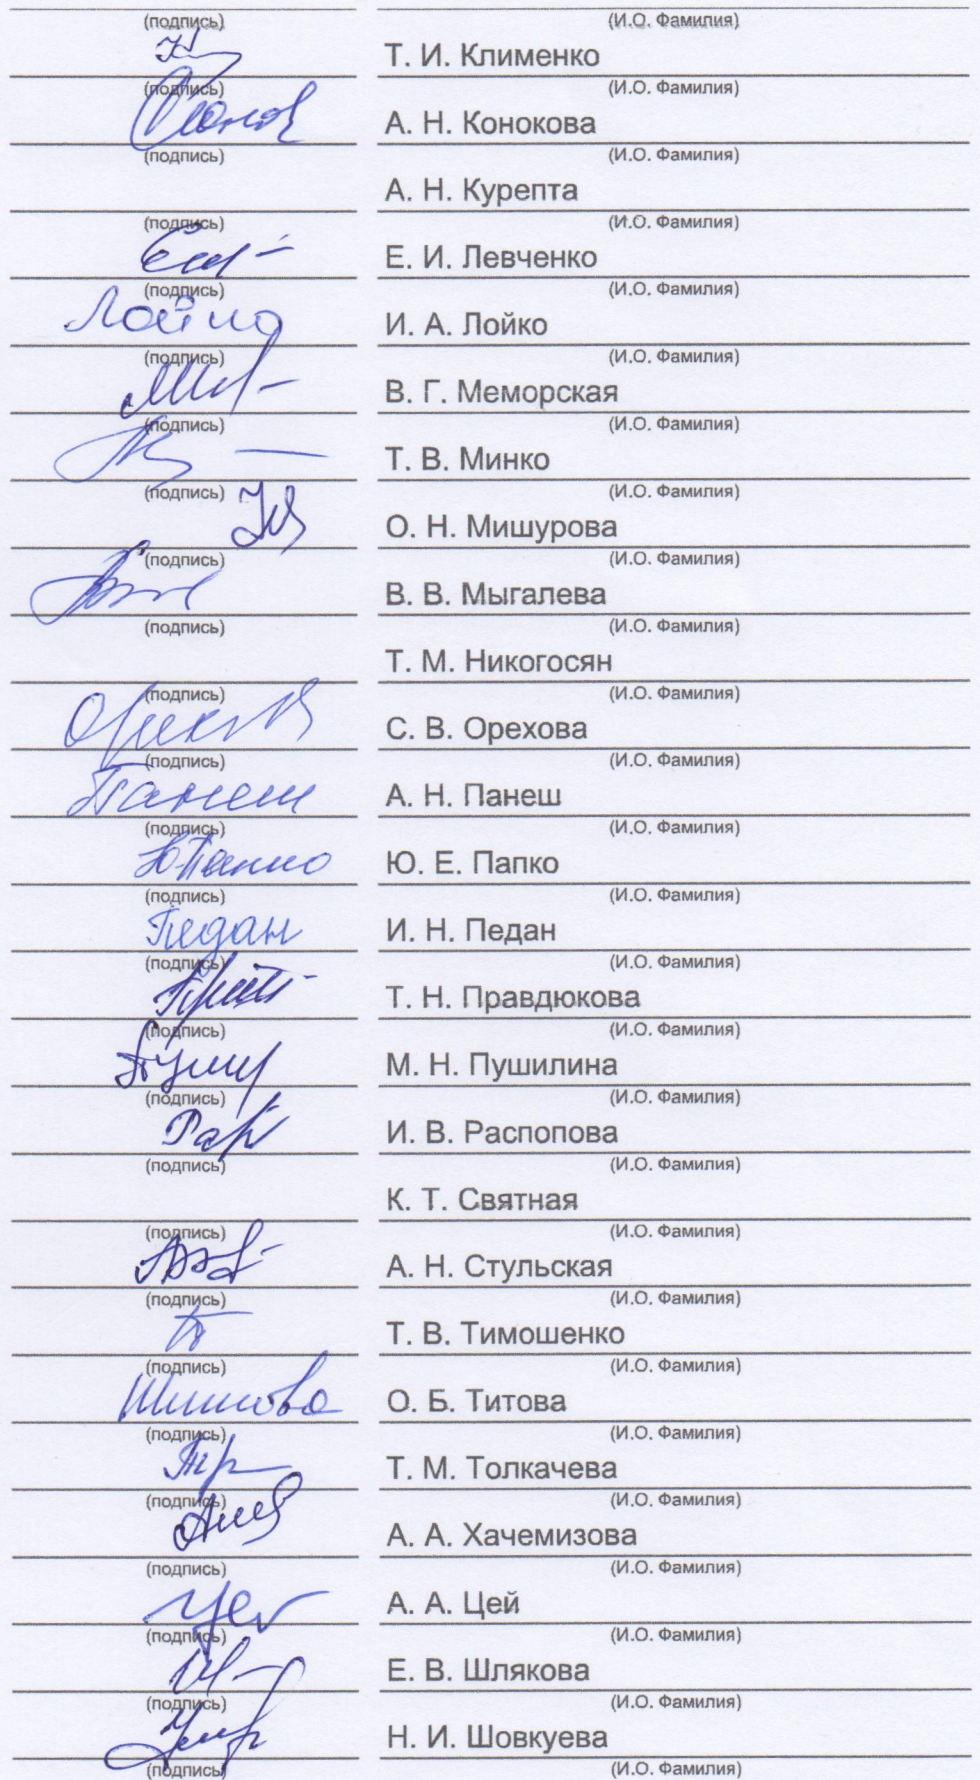 (подпись) (И.О. Фамилия)
Т. И. Клименко
(подпись) (И.О. Фамилия)
А. Н. Конокова
(подпись) (И.О. Фамилия)
А. Н. Курепта
(подпись) (И.О. Фамилия)
Е. И. Левченко
(подпись) (И.О. Фамилия)
Лойко И. А. Лойко
(подпись) (И.О. Фамилия)
В. Г. Меморская
(подпись) (И.О. Фамилия)
Т. В. Минко
(подпись) (И.О. Фамилия)
О. Н. Мишурова
(подпись) (И.О. Фамилия)
В. В. Мыгалева
(подпись) (И.О. Фамилия)
Т. М. Никогосян
(подпись) (И.О. Фамилия)
С. В. Орехова
(подпись) (И.О. Фамилия)
Панеш А. Н. Панеш
(подпись) (И.О. Фамилия)
Ю. Е. Папко
(подпись) (И.О. Фамилия)
Педан И. Н. Педан
(подпись) (И.О. Фамилия)
Т. Н. Правдюкова
(подпись) (И.О. Фамилия)
М. Н. Пушилина
(подпись) (И.О. Фамилия)
И. В. Распопова
(подпись) (И.О. Фамилия)
К. Т. Святная
(подпись) (И.О. Фамилия)
А. Н. Стульская
(подпись) (И.О. Фамилия)
Т. В. Тимошенко
(подпись) (И.О. Фамилия)
О. Б. Титова
(подпись) (И.О. Фамилия)
Т. М. Толкачева
(подпись) (И.О. Фамилия)
А. А. Хачемизова
(подпись) (И.О. Фамилия)
А. А. Цей
(подпись) (И.О. Фамилия)
Е. В. Шлякова
(подпись) (И.О. Фамилия)
Н. И. Шовкуева
(подпись) (И.О. Фамилия)